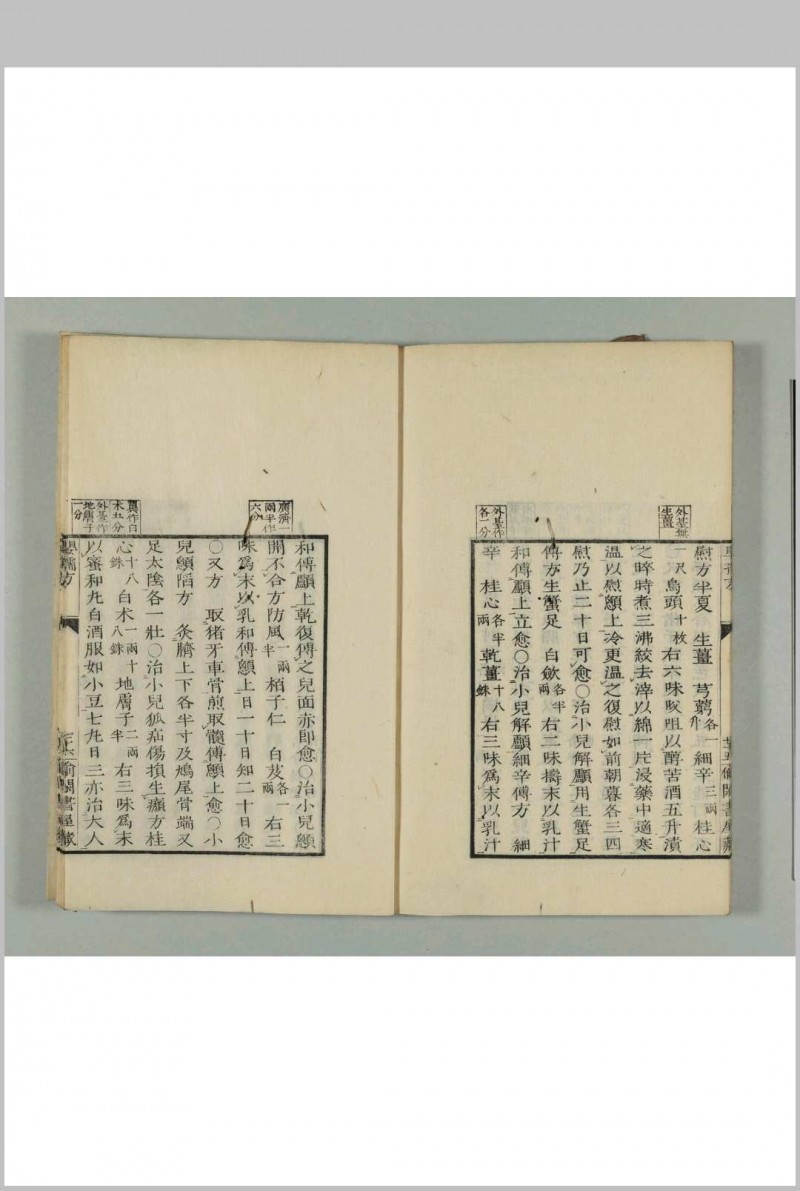 外基無
生薑
外基作
各一分
熨方半夏 生薑 芎藭各一升 細辛三兩 桂心
一尺 烏頭十枚 右六味㕮咀以醇苦酒五升漬
之晬時煮三沸絞去滓以綿一片浸藥中適寒
温以熨顖上冷更温之復熨如前朝暮各三四
熨乃止二十日可愈〇治小兒解顱用生蟹足
傅方生蟹足 白歛各半兩 右二味擣末以乳汁
和傅顱上立愈〇治小兒解顱細辛傅方 細
辛 桂心各半兩 乾薑十八銖 右三味爲末以乳汁
廣濟一
兩半作
六分
和傅顱上乾復傅之兒面赤即愈〇治小兒顖
開不合方防風一兩半 栢子仁 白芨各一兩 右三
味爲末以乳和傅顖上日一十日知二十日愈
〇又方 取猪牙車骨煎取髓傅顖上愈〇小
兒顖陷方 灸臍上下各半寸及鳩尾骨端又
足太陰各一壯〇治小兒狐疝傷損生㿗方桂
心十八銖 白术一兩十八銖 地膚子二兩半 右三味爲末
以蜜和丸白酒服如小豆七丸日三亦治大人
翼作白
术五分
外基作
地膚子
一分
嬰孺方